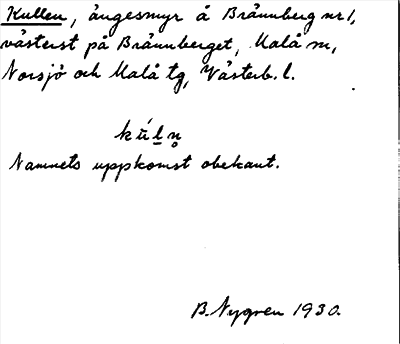 Kullen, ängesmyr å Brännberg nr 1,
västerst på Brännberget, Malå sn,
Norsjö och Malå tg, Västerb. l.
Namnets uppkomst obekant.
B. Nygren 1930.